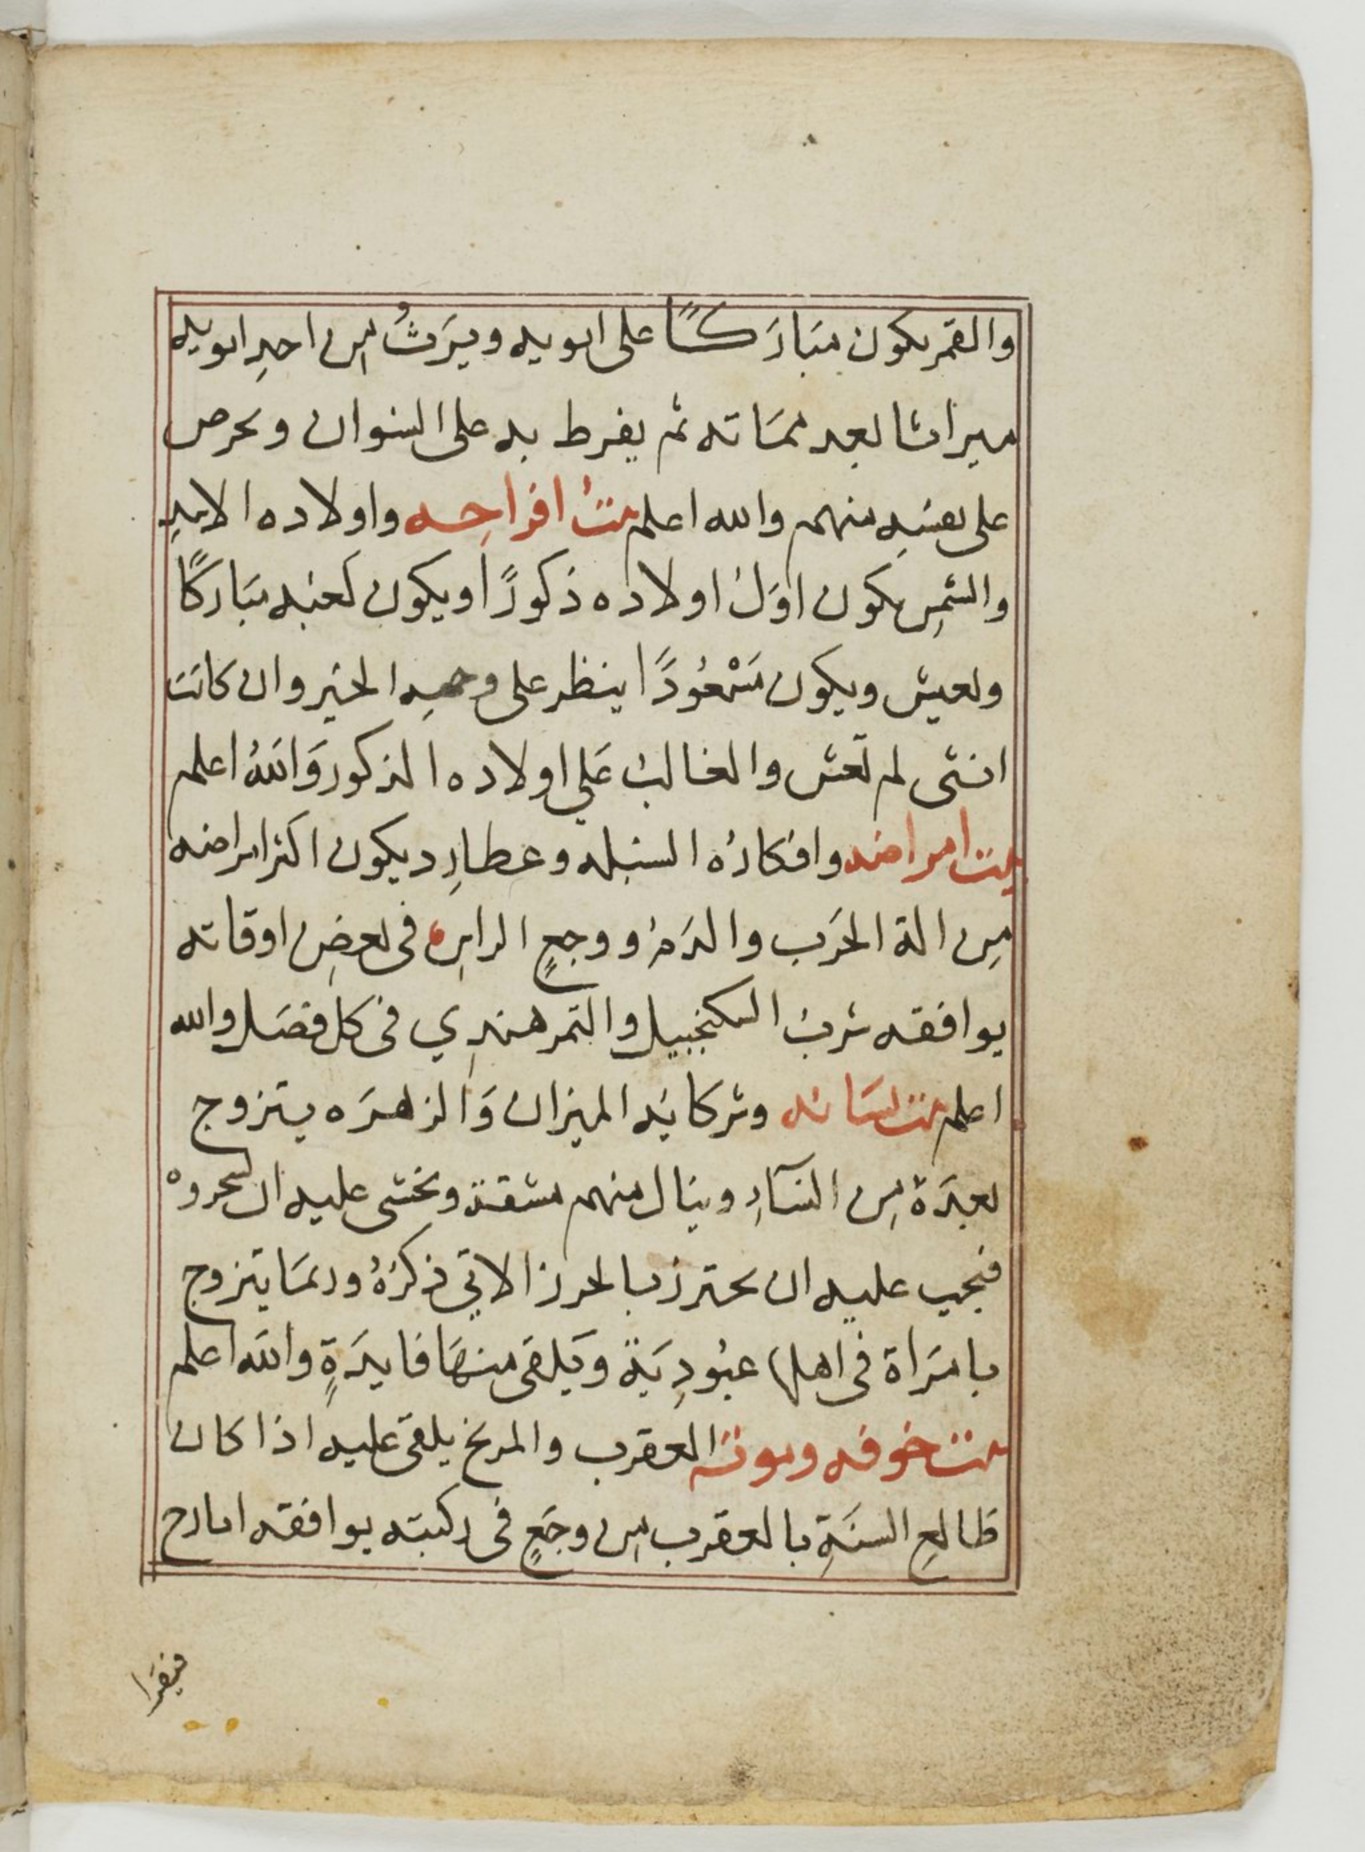 والقمر يكون مبَارَكًا على ابويه ويَرَثُ من احدِ ابويه
ميراثا بعد ممَاته ثم يفرط به على النسوان ويحرص
على نفسَهِ منهم والله اعلم بيتُ افراحِه واولاده الاسدِ
والشمسِ يكون اوّلُ اولاده ذكورًا ويكون كعبُه مبَاركًا
ويعيش ويكون مَسْعُودًا ينظر على وجههِ الخير وان كانت
انثى لم تعش والغالبُ عَلي اولاده الذكور وَاللهُ اعلم
بيت امراضه وافكارُه السنبله وعطارِد يكون اكثر امراضه
مِن الة الحَرَب والدَمُ ووجعٍ الراسِ فى بعضِ اوقاته
يوافقه شربُ السكنجبيل والتمر هندِي فى كل فصَل والله
اعلم بيت نسَائه وشركَائِه الميزان وَالزهرَه يتزوج
بعدَة مِن النسَآءِ وينال منهم مشقة ويخشى عليه ان يسحروهْ
فيجب عليه ان يحترز بالحرز الاتي ذكرُهُ وربمَا يتزوج
بامرَاة فى اهلها عبُودِيَة وَيلقى منهَا فايدَةٍ والله اعلم
بيت خوفه وموته العقرب والمريخ يلقى عليه اذا كان
طالعِ السنَةِ بالعقرب من وجَعٍ فى ركبته يوافقه ايارح
فيقرا